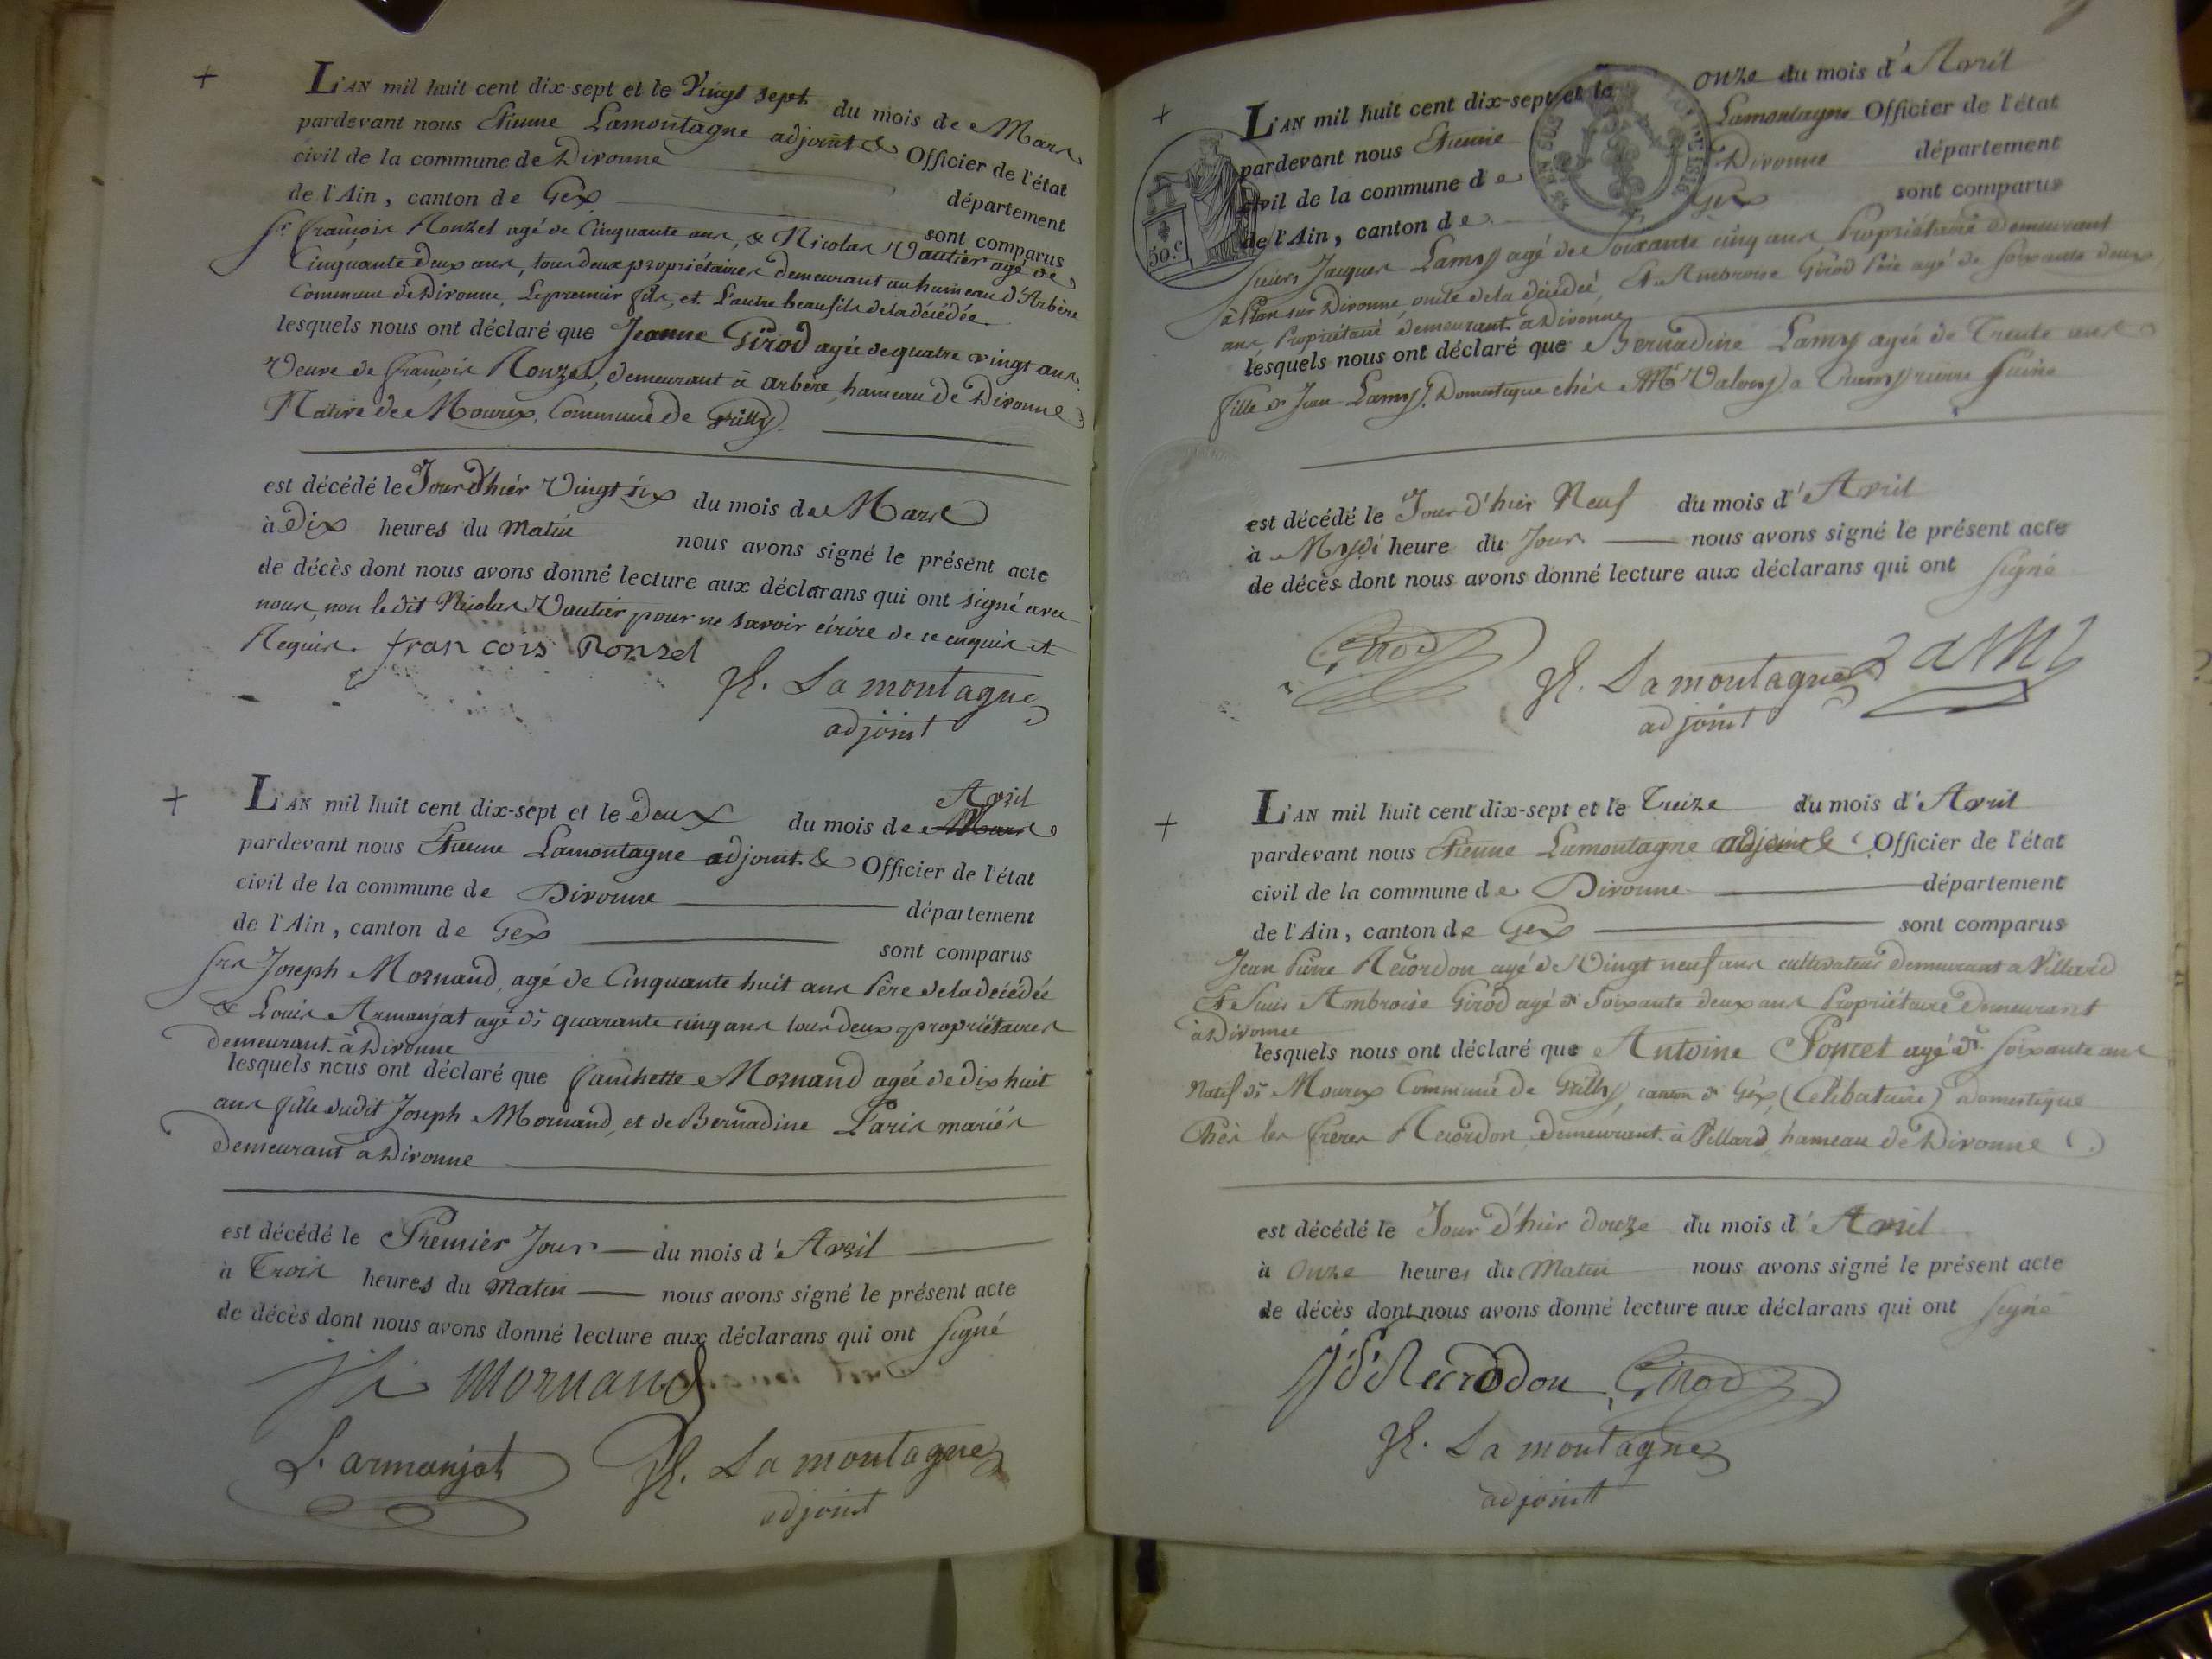 L'AN mil huit cent dix-sept et le Vingt sept du mois de Mars
pardevant nous Etienne Lamontagne adjoint & Officier de l'état
civil de la commune de Divonne département
de l'Ain, canton de Gex sont comparus
Sr. françois Ronzel agé de Cinquante ans, & Nicolas Vautier agé de
Cinquante deux ans, tous deux propriétaires demeurant au hameau d'Arbère
Commune de Divonne, Le premier fils, et L'autre beau fils de la décédée.
lesquels nous ont déclaré que Jeanne Girod agée de quatre vingt ans.
Veuve de françois Ronzel, demeurant à arbère, hameau de Divonne
Native de Mourex, Commune de Grilly.
est décédé le Jour d'hiér Vingt six du mois de Mars
à Dix heures du Matin nous avons signé le présent acte
de décès dont nous avons donné lecture aux déclarans qui ont signé avec
nous, non ledit Nicolas Vautier pour ne savoir écrire de ce enquis et
Requis. francois Ronzel
Lamontagne
adjoint
L'AN mil huit cent dix-sept et le Deux du mois de Mars Avril
pardevant nous Etienne Lamontagne adjoint & Officier de l'état
civil de la commune de Divonne département
de l'Ain, canton de Gex sont comparus
Srs Joseph Mornand, agé de Cinquante huit ans Père de la décédée
& Louis Armanjat agé de quarante cinq ans tous deux propriétaires
demeurant à Divonne
lesquels nous ont déclaré que fanchette Mornand agée de dix huit
ans fille dudit Joseph Mornand, et de Bernadine Paris mariés
Demeurant à Divonne
est décédé le Premier Jour du mois d'Avril
à Trois heures du Matin nous avons signé le présent acte
de décès dont nous avons donné lecture aux déclarans qui ont signé
Mornand
L. armanjat Lamontagne
adjoint
L'AN mil huit cent dix-sept et le onze du mois d'Avril
pardevant nous Etienne Lamontagne Officier de l'état
civil de la commune de Divonne département
de l'Ain, canton de Gex sont comparus
50.c
Sieurs Jacques Lamy agé de Soixante cinq ans Propriétaire Demeurant
à Plan sur Divonne, oncle de la décédée, Et Ambroise Girod Père agé de soixante deux
ans Propriétaire demeurant à Divonne
lesquels nous ont déclaré que Bernadine Lamy agée de Trente ans
fille de Jean Lamy, Domestique chés Mr.
est décédé le Jour d'hiér Neuf du mois d'Avril
à Mydi heure du Jour nous avons signé le présent acte
de décès dont nous avons donné lecture aux déclarans qui ont signé
Girod Lamontagne Lamy
adjoint
L'AN mil huit cent dix-sept et le Treize du mois d'Avril
pardevant nous Etienne Lamontagne adjoint & Officier de l'état
civil de la commune de Divonne département
de l'Ain, canton de Gex sont comparus
Jean Pierre Recordon agé de Vingt neuf ans cultivateur demeurant a Villard
Et Sieur Ambroise Girod agé de Soixante deux ans Propriétaire Demeurant
à Divonne
lesquels nous ont déclaré que Antoine Poncet agé de soixante ans
Natif de Mourex Commune de Grilly, canton de Gex, (Célibataire) Domestique
Chés les frères Recordon, demeurant à Villard, hameau de Divonne
est décédé le Jour d'hiér douze du mois d'Avril
à Onze heures du Matin nous avons signé le présent acte
de décès dont nous avons donné lecture aux déclarans qui ont signé
Recordon Girod
Lamontagne
adjoint